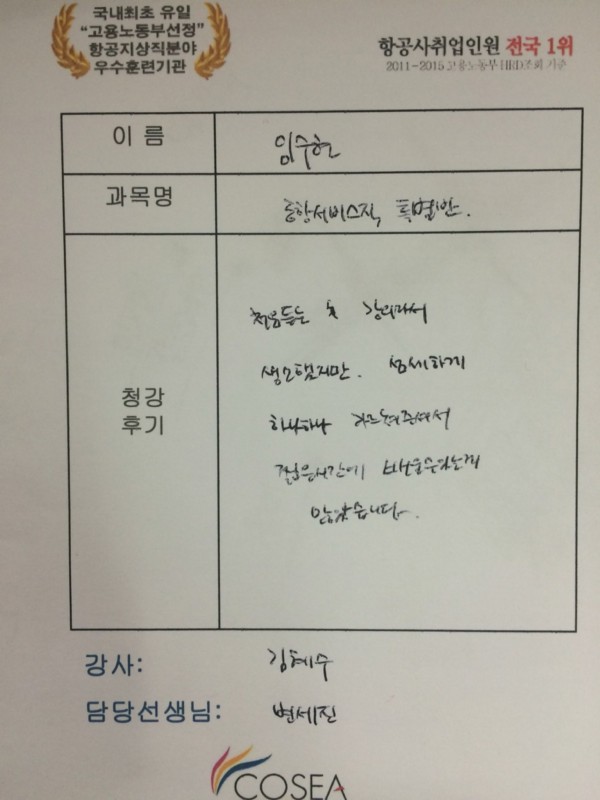 국내최초 유일
"고용노동부선정"
항공지상직분야
우수훈련기관
항공사취업인원 전국 1위
2011~2015 고용노동부 HRD조회 기준
이 름
임수현
과목명
공항서비스직 특별반.
청강
후기
처음듣는 강의라서
생소했지만. 섬세하게
하나하나 가르쳐주셔서
짧은시간에 배울수있는게
많았습니다.
강사:
김혜수
담당선생님:
변세진
COSEA